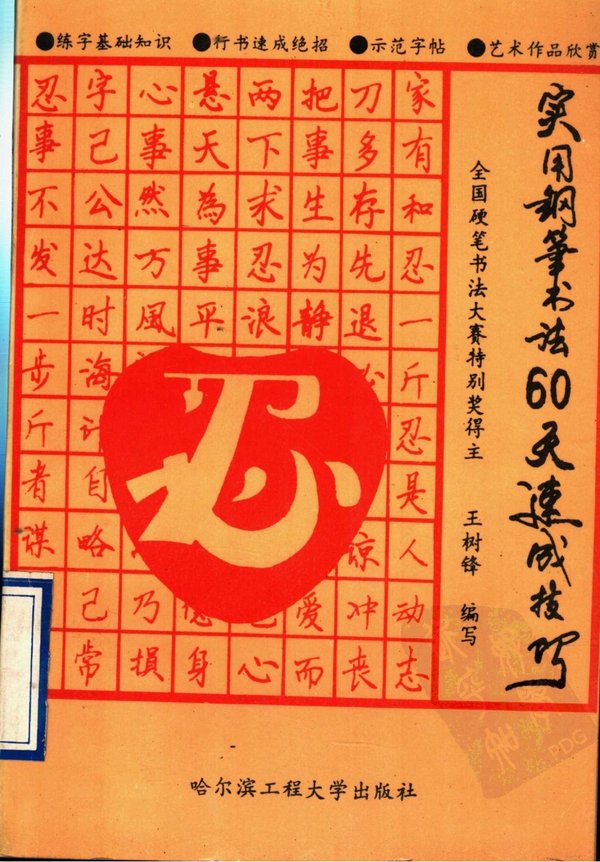 ●练字基础知识 ●行书速成绝招 ●示范字帖 ●艺术作品欣赏
忍字心悬两把刀家
事己事天下事多有
不公然為求生存和
发达万事忍为先忍
一时風平浪静退一
步海 斤
斤计 忍
者自 是
谋略 谅人
己乃 爱冲动
常損身心而丧志
忍
实用鋼筆书法60天速成技巧
全国硬笔书法大赛特别奖得主 王树锋 编写
哈尔滨工程大学出版社
PDG